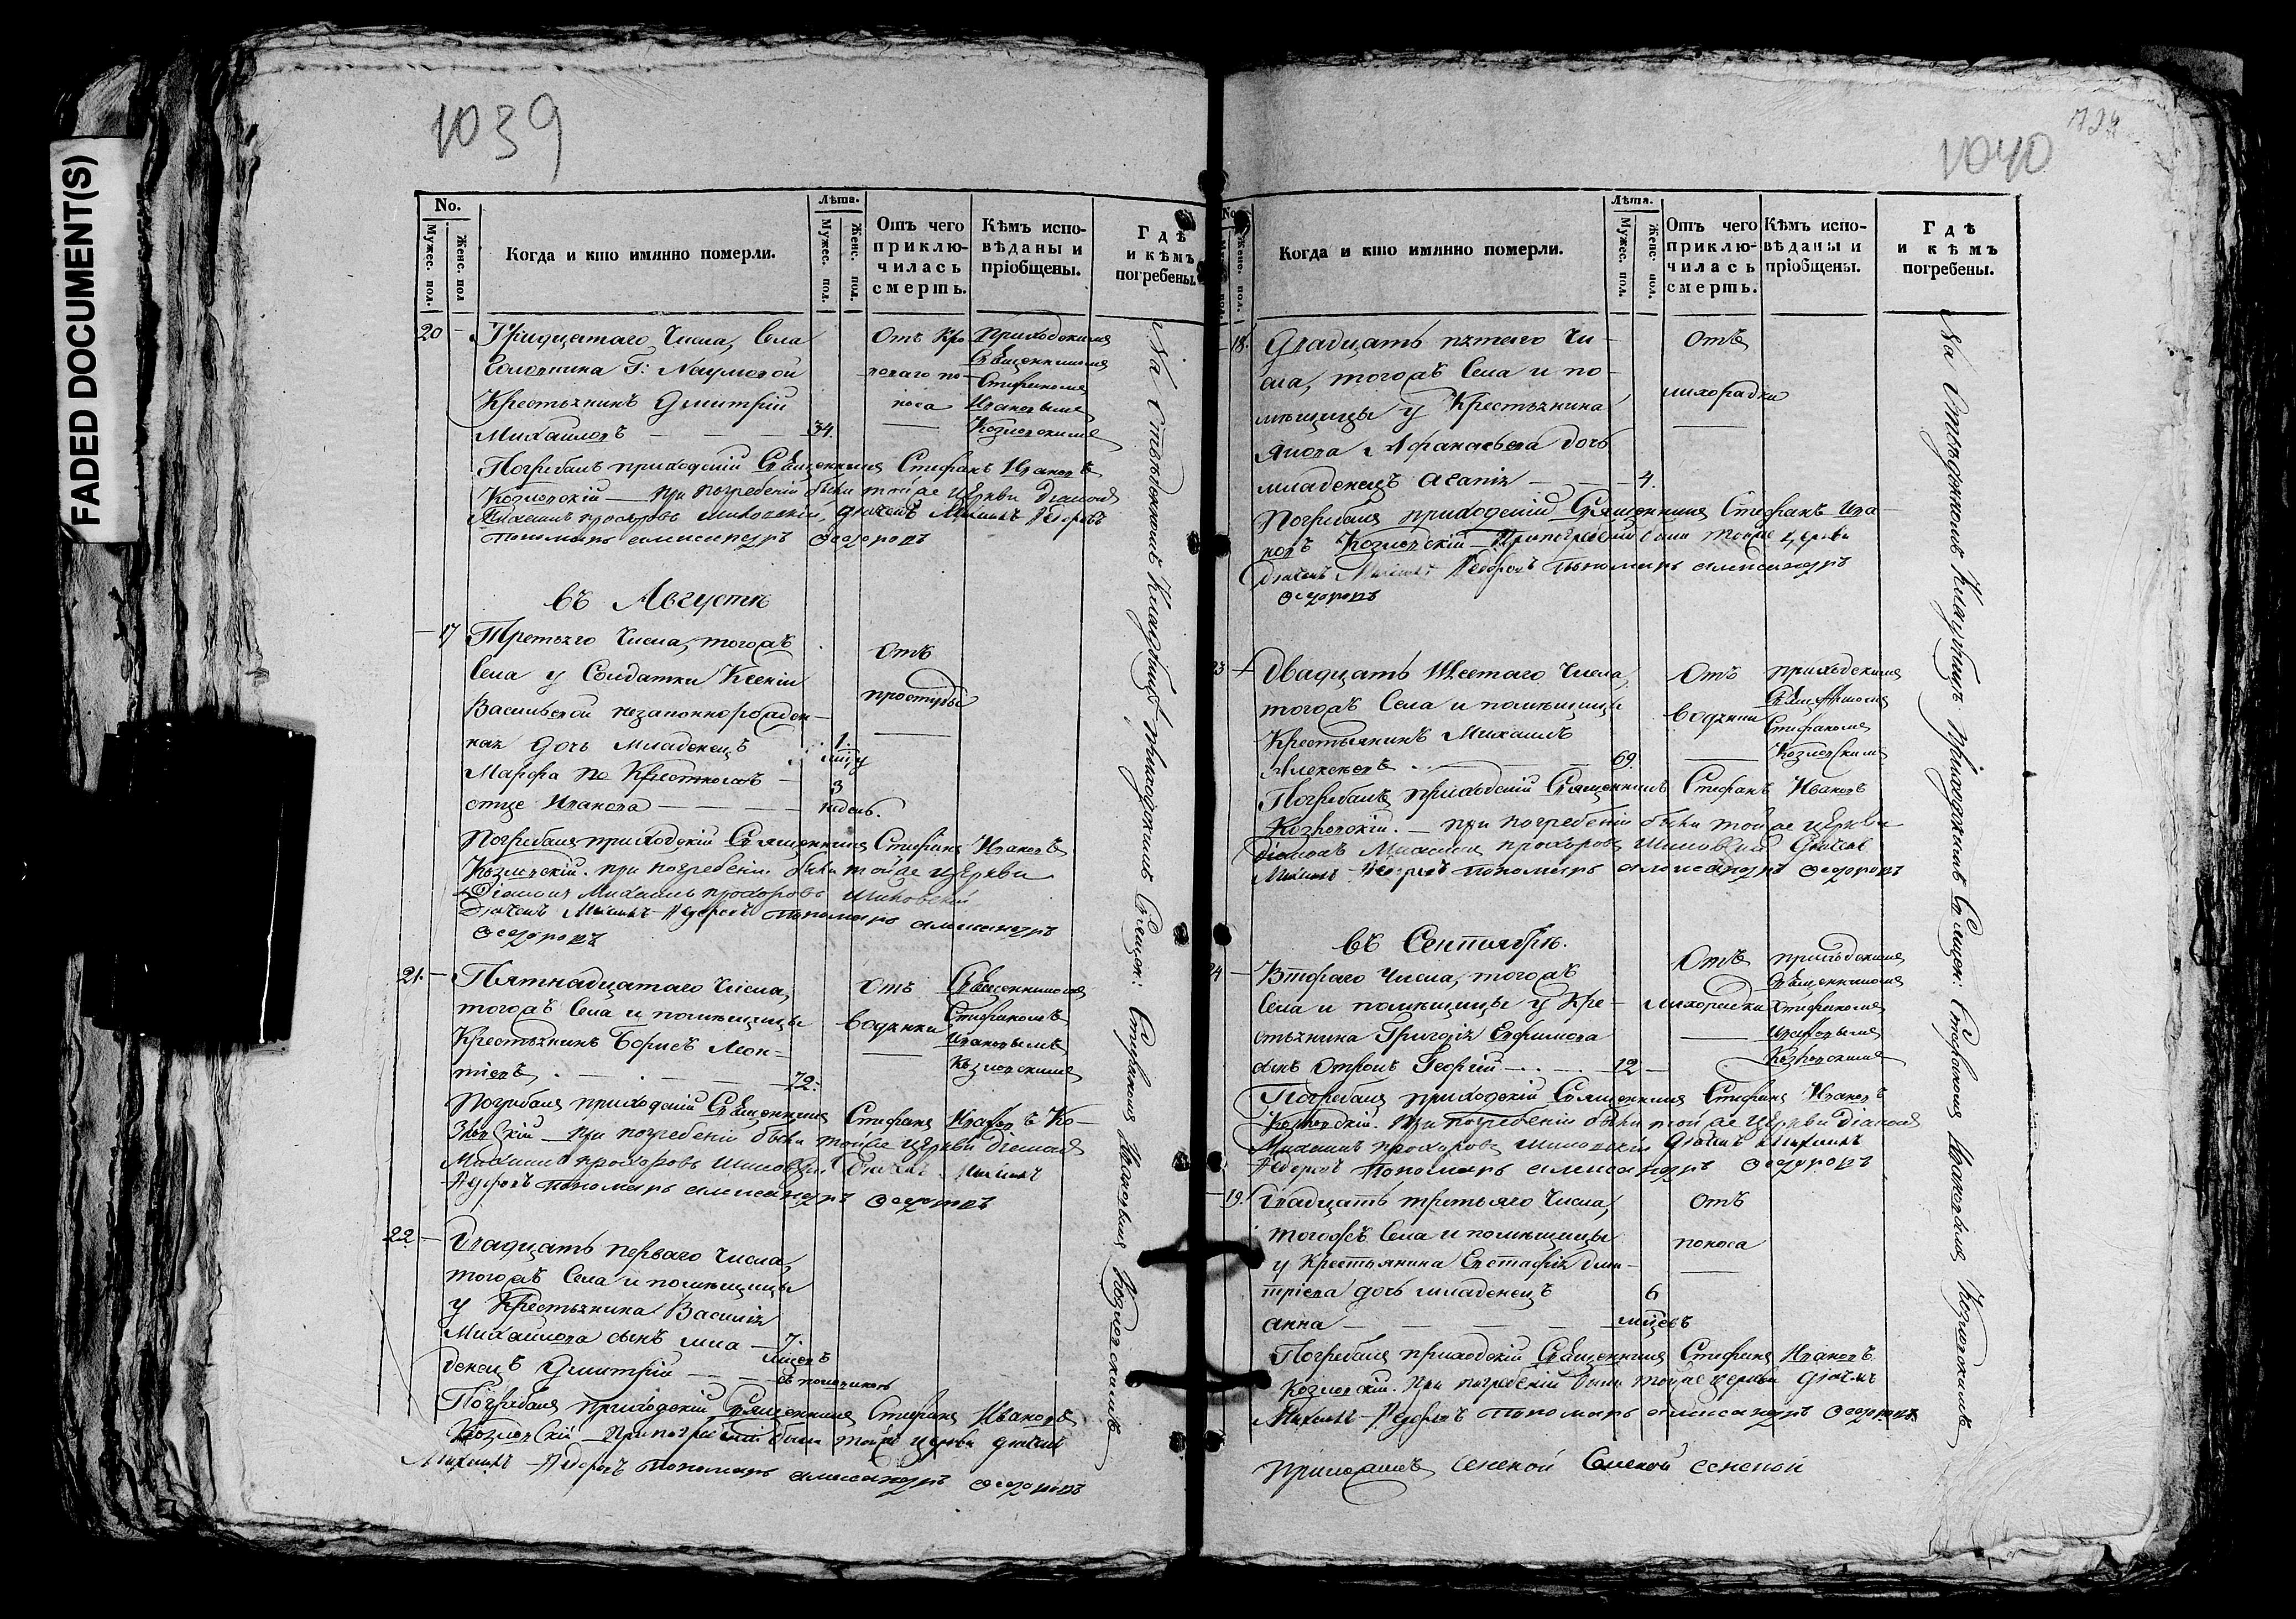 FADED DOCUMENT(S)
1039
No.
Мужес. пол.
Женс. пол
Когда и кто имянно померли.
Лѣта.
Мужес. пол.
Женс. пол.
Отъ чего приклю-чилась смерть.
Кѣмъ испо-вѣданы и пріобщены.
Гдѣ и кѣмъ погребены.
20 Тридцатаго Числа, Села
Г: Наумовой
Крестьянинъ Дмитрій
Михайловъ 34.
Отъ кро
ваго по-
носа
приходскимъ
Священникомъ
Стефаномъ
Ивановымъ
Козловскимъ
Погребалъ приходскій Священникъ Стефанъ Ивановъ
Козловскій при погребеніи были тойже церкви Діаконъ
Михаилъ прохоровъ дьячекъ Михаилъ Федоровъ
пономарь александръ Федоровъ
въ Августѣ
17 Третьяго Числа, тогожъ
Села у Солдатки Ксеніи
Васильевой незаконнорожден-
ная дочь младенецъ
Марфа по Крестномъ
отце Иванова
1.
3
недель.
Отъ
простуды
Погребалъ приходскій Священникъ Стефанъ Ивановъ
Козловскій. при погребеніи были тойже церкви
Діаконъ Михаилъ прохоровъ
Дьячекъ Михаилъ Федоровъ пономарь александръ
Федоровъ
21. Пятнадцатаго Числа,
тогожъ Села и помѣщицы
Крестьянинъ Борисъ Леон-
тіевъ 72.
Отъ
водянки
Священникомъ
Стефаномъ
Ивановымъ
Козловскимъ
Погребалъ приходскій Священникъ Стефанъ Ивановъ Ко-
зловскій при погребеніи были тойже церкви Діаконъ
Михаилъ прохоровъ Дьячекъ Михаилъ
Федоровъ пономарь александръ Федоровъ
22 Двадцать перваго Числа,
тогожъ Села и помѣщицы
у Крестьянина Василія
Михайлова сынъ мла-
денецъ Дмитрій
7.
мѣсецъ
съ половиною
Погребалъ приходскій Священникъ Стефанъ Ивановъ
Козловскій При погребеніи были тойже церкви дьячекъ
Михаилъ Федоровъ пономарь александръ Федоровъ
На Кладбищѣ приходскимъ Священ: Стефаномъ Ивановымъ Козловскимъ
1040
No
Женс. пол.
Когда и кто имянно померли.
Лѣта.
Мужес. пол.
Женс. пол.
Отъ чего приклю-чилась смерть.
Кѣмъ испо-вѣданы и пріобщены.
Гдѣ и кѣмъ погребены.
18. Двадцать пятаго Чи-
сла, тогожъ Села и по-
мѣщицы у Крестьянина
Якова Афанасьева дочь
младенецъ агапія 4.
Отъ
лихорадки
Погребалъ приходскій Священникъ Стефанъ Ива-
новъ Козловскій При погребеніи были тойже церкви
Дьячекъ Михаилъ Федоровъ пономарь александръ
Федоровъ
23 Двадцать Шестаго Числа,
тогожъ Села и помѣщицы
Крестьянинъ Михаилъ
Алексѣевъ 69.
Отъ
водянки
приходскимъ
Священникомъ
Стефаномъ
Козловскимъ
Погребалъ приходскій Священникъ Стефанъ Ивановъ
Козловскій. при погребеніи были тойже церкви
Діаконъ Михаилъ прохоровъ Дьячекъ
Михаилъ Федоровъ пономарь александръ Федоровъ
въ Сентябрѣ.
24 Втораго Числа, тогожъ
Села и помѣщицы у Кре-
стьянина Григорія Ефимова
сынъ Отрокъ Георгій 12
Отъ
лихорадки
приходскимъ
Священникомъ
Стефаномъ
Ивановымъ
Козловскимъ
Погребалъ приходскій Священникъ Стефанъ Ивановъ
Козловскій. При погребеніи были тойже церкви Діаконъ
Михаилъ прохоровъ дьячекъ Михаилъ
Федоровъ пономарь александръ Федоровъ
19. Двадцать третьяго Числа,
тогожъ Села и помѣщицы
у Крестьянина Евстафія Дми-
тріева дочь младенецъ
анна
6
мѣсецъ
Отъ
поноса
Погребалъ приходскій Священникъ Стефанъ Ивановъ
Козловскій. При погребеніи были тойже церкви дьячекъ
Михаилъ Федоровъ пономарь александръ Федоровъ
На Кладбищѣ приходскимъ Священ: Стефаномъ Ивановымъ Козловскимъ